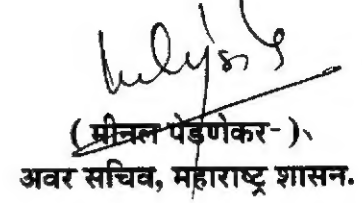 ( मीनल पेडणेकर- )
अवर सचिव, महाराष्ट्र शासन.